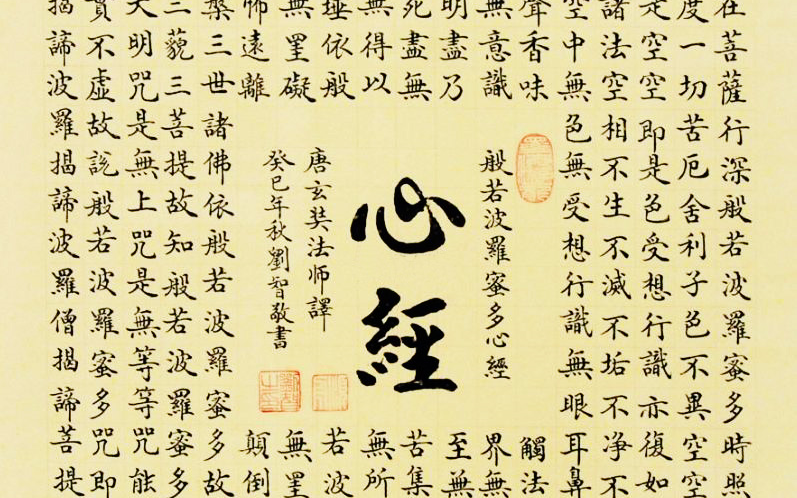 在菩薩行深般若波羅蜜多時照
度一切苦厄舍利子色不異空空
是空空即是色受想行識亦復如
諸法空相不生不滅不垢不净不
空中無色無受想行識無眼耳鼻
聲香味觸法
無意識界無
明盡乃至無
死盡無苦集
無得以無所
埵依般若波
無罣礙無罣
怖遠離顛倒
槃三世諸佛依般若波羅蜜多故
三藐三菩提故知般若波羅蜜多
大明咒是無上咒是無等等咒能
實不虛故說般若波羅蜜多咒即
揭諦波羅揭諦波羅僧揭諦菩提
般若波羅蜜多心經
心經
唐玄奘法师譯
癸巳年秋劉智敬書